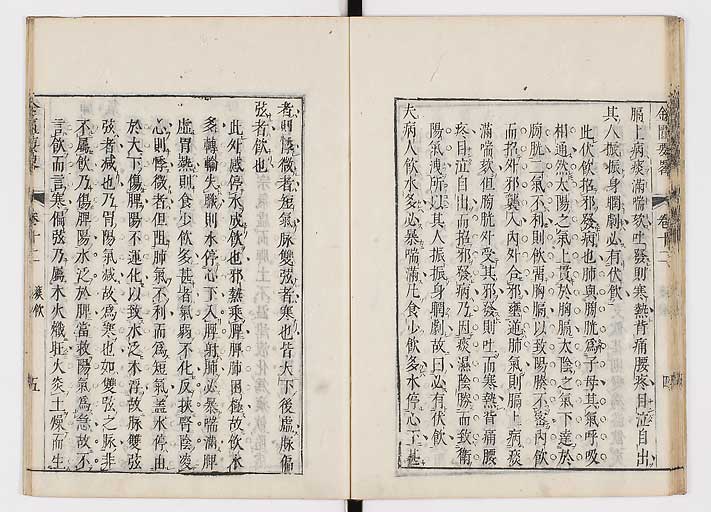 金匱要略 卷十二 痰飲 四
膈上病痰滿喘欬吐發則寒熱背痛腰疼目泣自出
其人振振身瞤劇必有伏飲
此伏飲招邪發病也肺與膀胱爲子母其氣呼吸
相通然太陽之氣上貫於胸膈太陰之氣下達於
膀胱二氣不利則飲畱胸膈以致陽勝不密內飲
而招外邪襲入內外合邪壅逆肺氣則膈上病痰
滿喘欬但膀胱外受其邪發則吐而寒熱背痛腰
疼目泣自出而招邪發病乃因痰濕陰勝而致衛
陽氣洩所以其人振振身瞤劇故曰必有伏飲
夫病人飲水多必暴喘滿凡食少飲多水停心下甚
者則悸微者短氣脉雙弦者寒也皆大下後虛脉偏
弦者飲也
此外感停水成飲也邪熱乘脾脾肺困極故飲水
多轉輸失職則水停心下入脾射肺必暴喘滿脾
虛胃熱則食少飲多甚者氣弱不化反挾腎陰凌
心則悸微者但阻肺氣不利而爲短氣蓋水停由
於大下傷脾陽不運化以致水泛木浮故脉雙弦
者寒也乃胃陽氣減故爲寒也如雙弦之脉非
不屬飲乃傷脾陽水泛於脾當救陽氣爲急故不
言飲而言寒偏弦乃屬木火熾旺火炎土燥而生
金匱要略 卷十二 痰飲 五